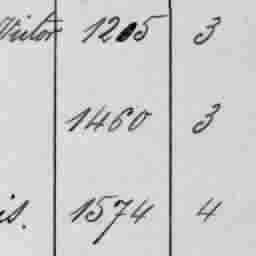 Victor 1205 3
1460 3
is. 1574 4